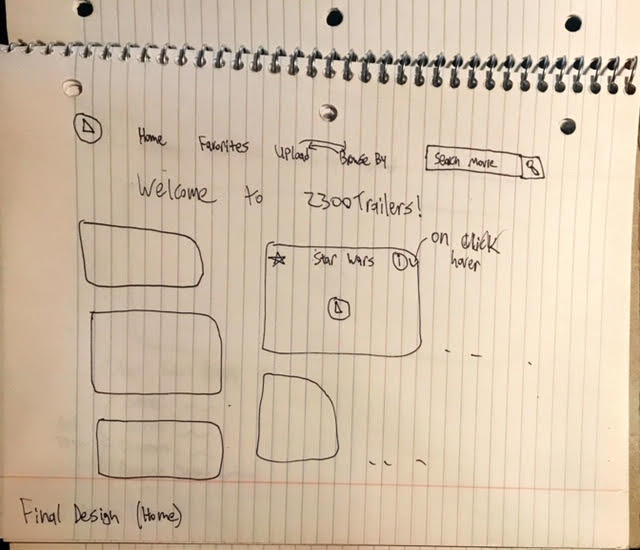 Home Favorites Upload Browse By Search Movie
Welcome to 2300Trailers!
Star Wars
on click
hover
Final Design (Home)